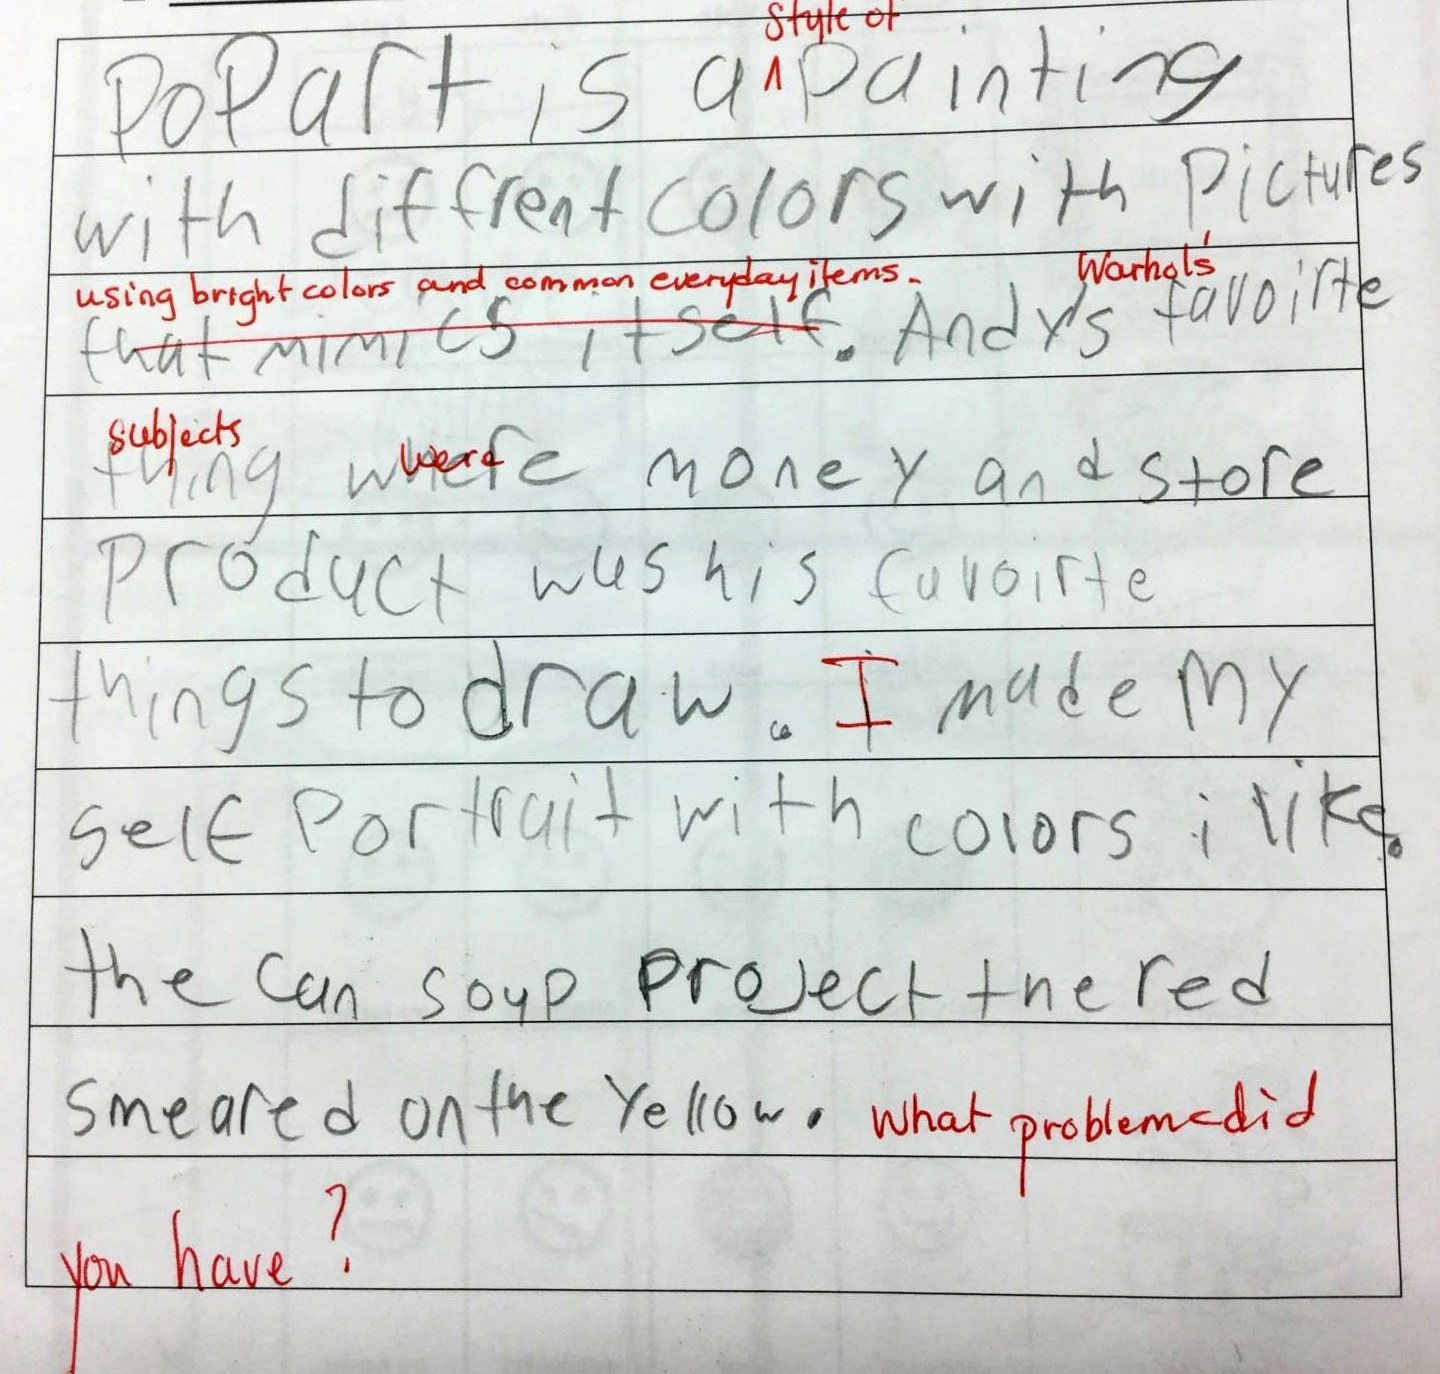 style of
PoPart is a ^ painting
with diffrent colors with Pictures
using bright colors and common everyday items. Warhol's
that mimics itself. Andy's favoirte
subjects were
thing where money and store
Product was his favoirte
things to draw. I made My
self Portrait with colors i like.
the can soup Project the red
smeared on the Yellow. What probleme did
you have?